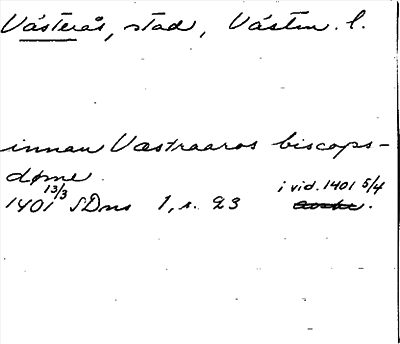 Västerås, stad, Västm. l.
innan Væstraaros biscops-
døme.
1401 13/3 SDns 1, s. 23 i vid. 1401 5/4.